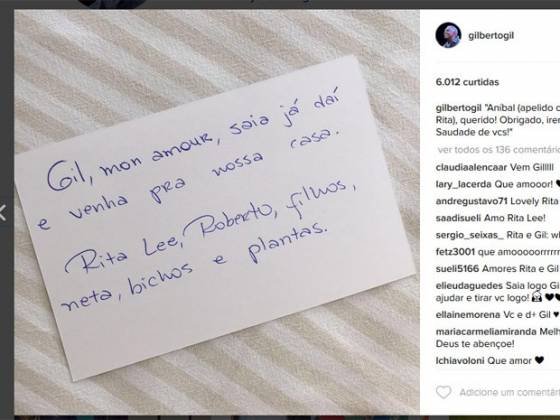 Gil, mon amour, saia já daí
e venha pra nossa casa.
Rita Lee, Roberto, filhos,
neta, bichos e plantas.
gilbertogil
6.012 curtidas
gilbertogil "Aníbal (apelido
Rita), querido! Obrigado,
Saudade de vcs!"
ver todos os 136
claudiaalencaar Vem Gilllll
lary_lacerda Que amooor! ♥
andregustavo71 Lovely Rita
saadisueli Amo Rita Lee!
sergio_seixas_ Rita e Gil:
fetz3001 que
sueli5166 Amores Rita e Gil
elieudaguedes Saia logo
ajudar e tirar vc logo!
ellainemorena Vc e d+ Gil ♥
mariacarmeliamiranda
Deus te abençoe!
lchiavoloni Que amor ♥
Adicione um